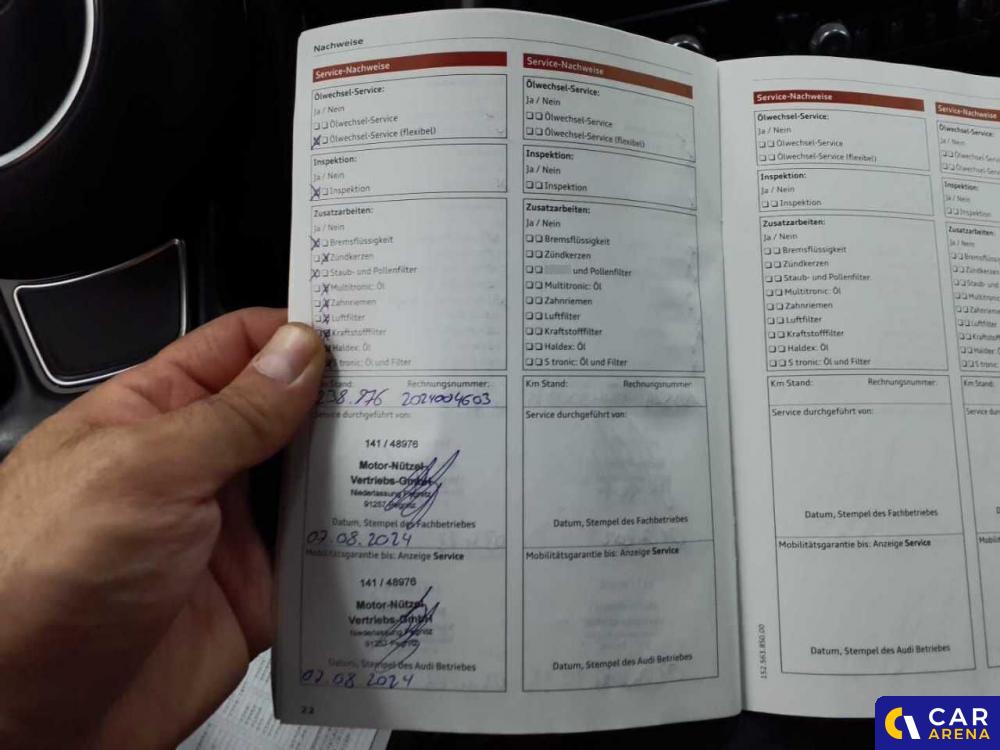 Nachweise
Service-Nachweise
Ölwechsel-Service:
Ja / Nein
Ölwechsel-Service
Ölwechsel-Service (flexibel)
Inspektion:
Ja / Nein
Inspektion
Zusatzarbeiten:
Ja / Nein
Bremsflüssigkeit
Zündkerzen
Staub- und Pollenfilter
Multitronic: Öl
Zahnriemen
Luftfilter
Kraftstofffilter
Haldex: Öl
S tronic: Öl und Filter
Km Stand: Rechnungsnummer:
238.976 2024004603
Service durchgeführt von:
141 / 48976
Motor-Nützel
Vertriebs-GmbH
Niederlassung Pegnitz
91257 Pegnitz
Datum, Stempel des Fachbetriebes
07.08.2024
Mobilitätsgarantie bis: Anzeige Service
141 / 48976
Motor-Nützel
Vertriebs-GmbH
Niederlassung Pegnitz
91257 Pegnitz
Datum, Stempel des Audi Betriebes
07.08.2024
22
Service-Nachweise
Ölwechsel-Service:
Ja / Nein
Ölwechsel-Service
Ölwechsel-Service (flexibel)
Inspektion:
Ja / Nein
Inspektion
Zusatzarbeiten:
Ja / Nein
Bremsflüssigkeit
Zündkerzen
und Pollenfilter
Multitronic: Öl
Zahnriemen
Luftfilter
Kraftstofffilter
Haldex: Öl
S tronic: Öl und Filter
Km Stand: Rechnungsnummer:
Service durchgeführt von:
Datum, Stempel des Fachbetriebes
Mobilitätsgarantie bis: Anzeige Service
Datum, Stempel des Audi Betriebes
Service-Nachweise
Ölwechsel-Service:
Ja / Nein
Ölwechsel-Service
Ölwechsel-Service (flexibel)
Inspektion:
Ja / Nein
Inspektion
Zusatzarbeiten:
Ja / Nein
Bremsflüssigkeit
Zündkerzen
Staub- und Pollenfilter
Multitronic: Öl
Zahnriemen
Luftfilter
Kraftstofffilter
Haldex: Öl
S tronic: Öl und Filter
Km Stand: Rechnungsnummer:
Service durchgeführt von:
Datum, Stempel des Fachbetriebes
Mobilitätsgarantie bis: Anzeige Service
Datum, Stempel des Audi Betriebes
152.563.850.00
Service-Nachweise
Ölwechsel-Service:
Ja / Nein
Inspektion:
Ja / Nein
Inspektion
Zusatzarbeiten:
Ja / Nein
Zündkerzen
Zahnriemen
Luftfilter
Km Stand:
CAR
ARENA